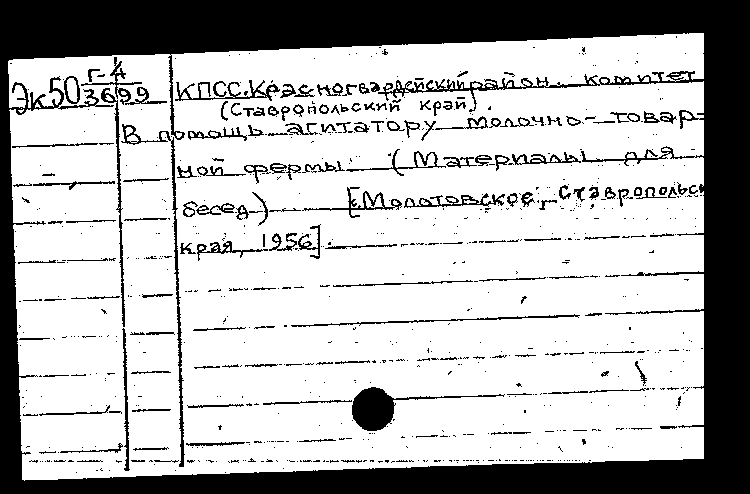 Эк50 Г-4
3699
КПСС. Красногвардейский район. комитет
(Ставропольский край).
В помощь агитатору молочно-товар-
ной фермы. (Материалы для
бесед) [с. Молотовское, Ставропольск
края, 1956].